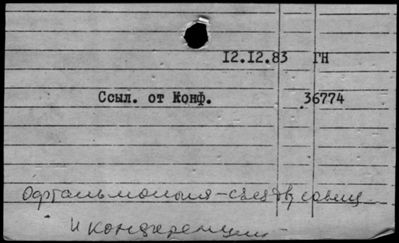 12.12.83 ГН
Ссыл. от Конф. 36774
Офтальмология - съезды, совещ.
и конференции.